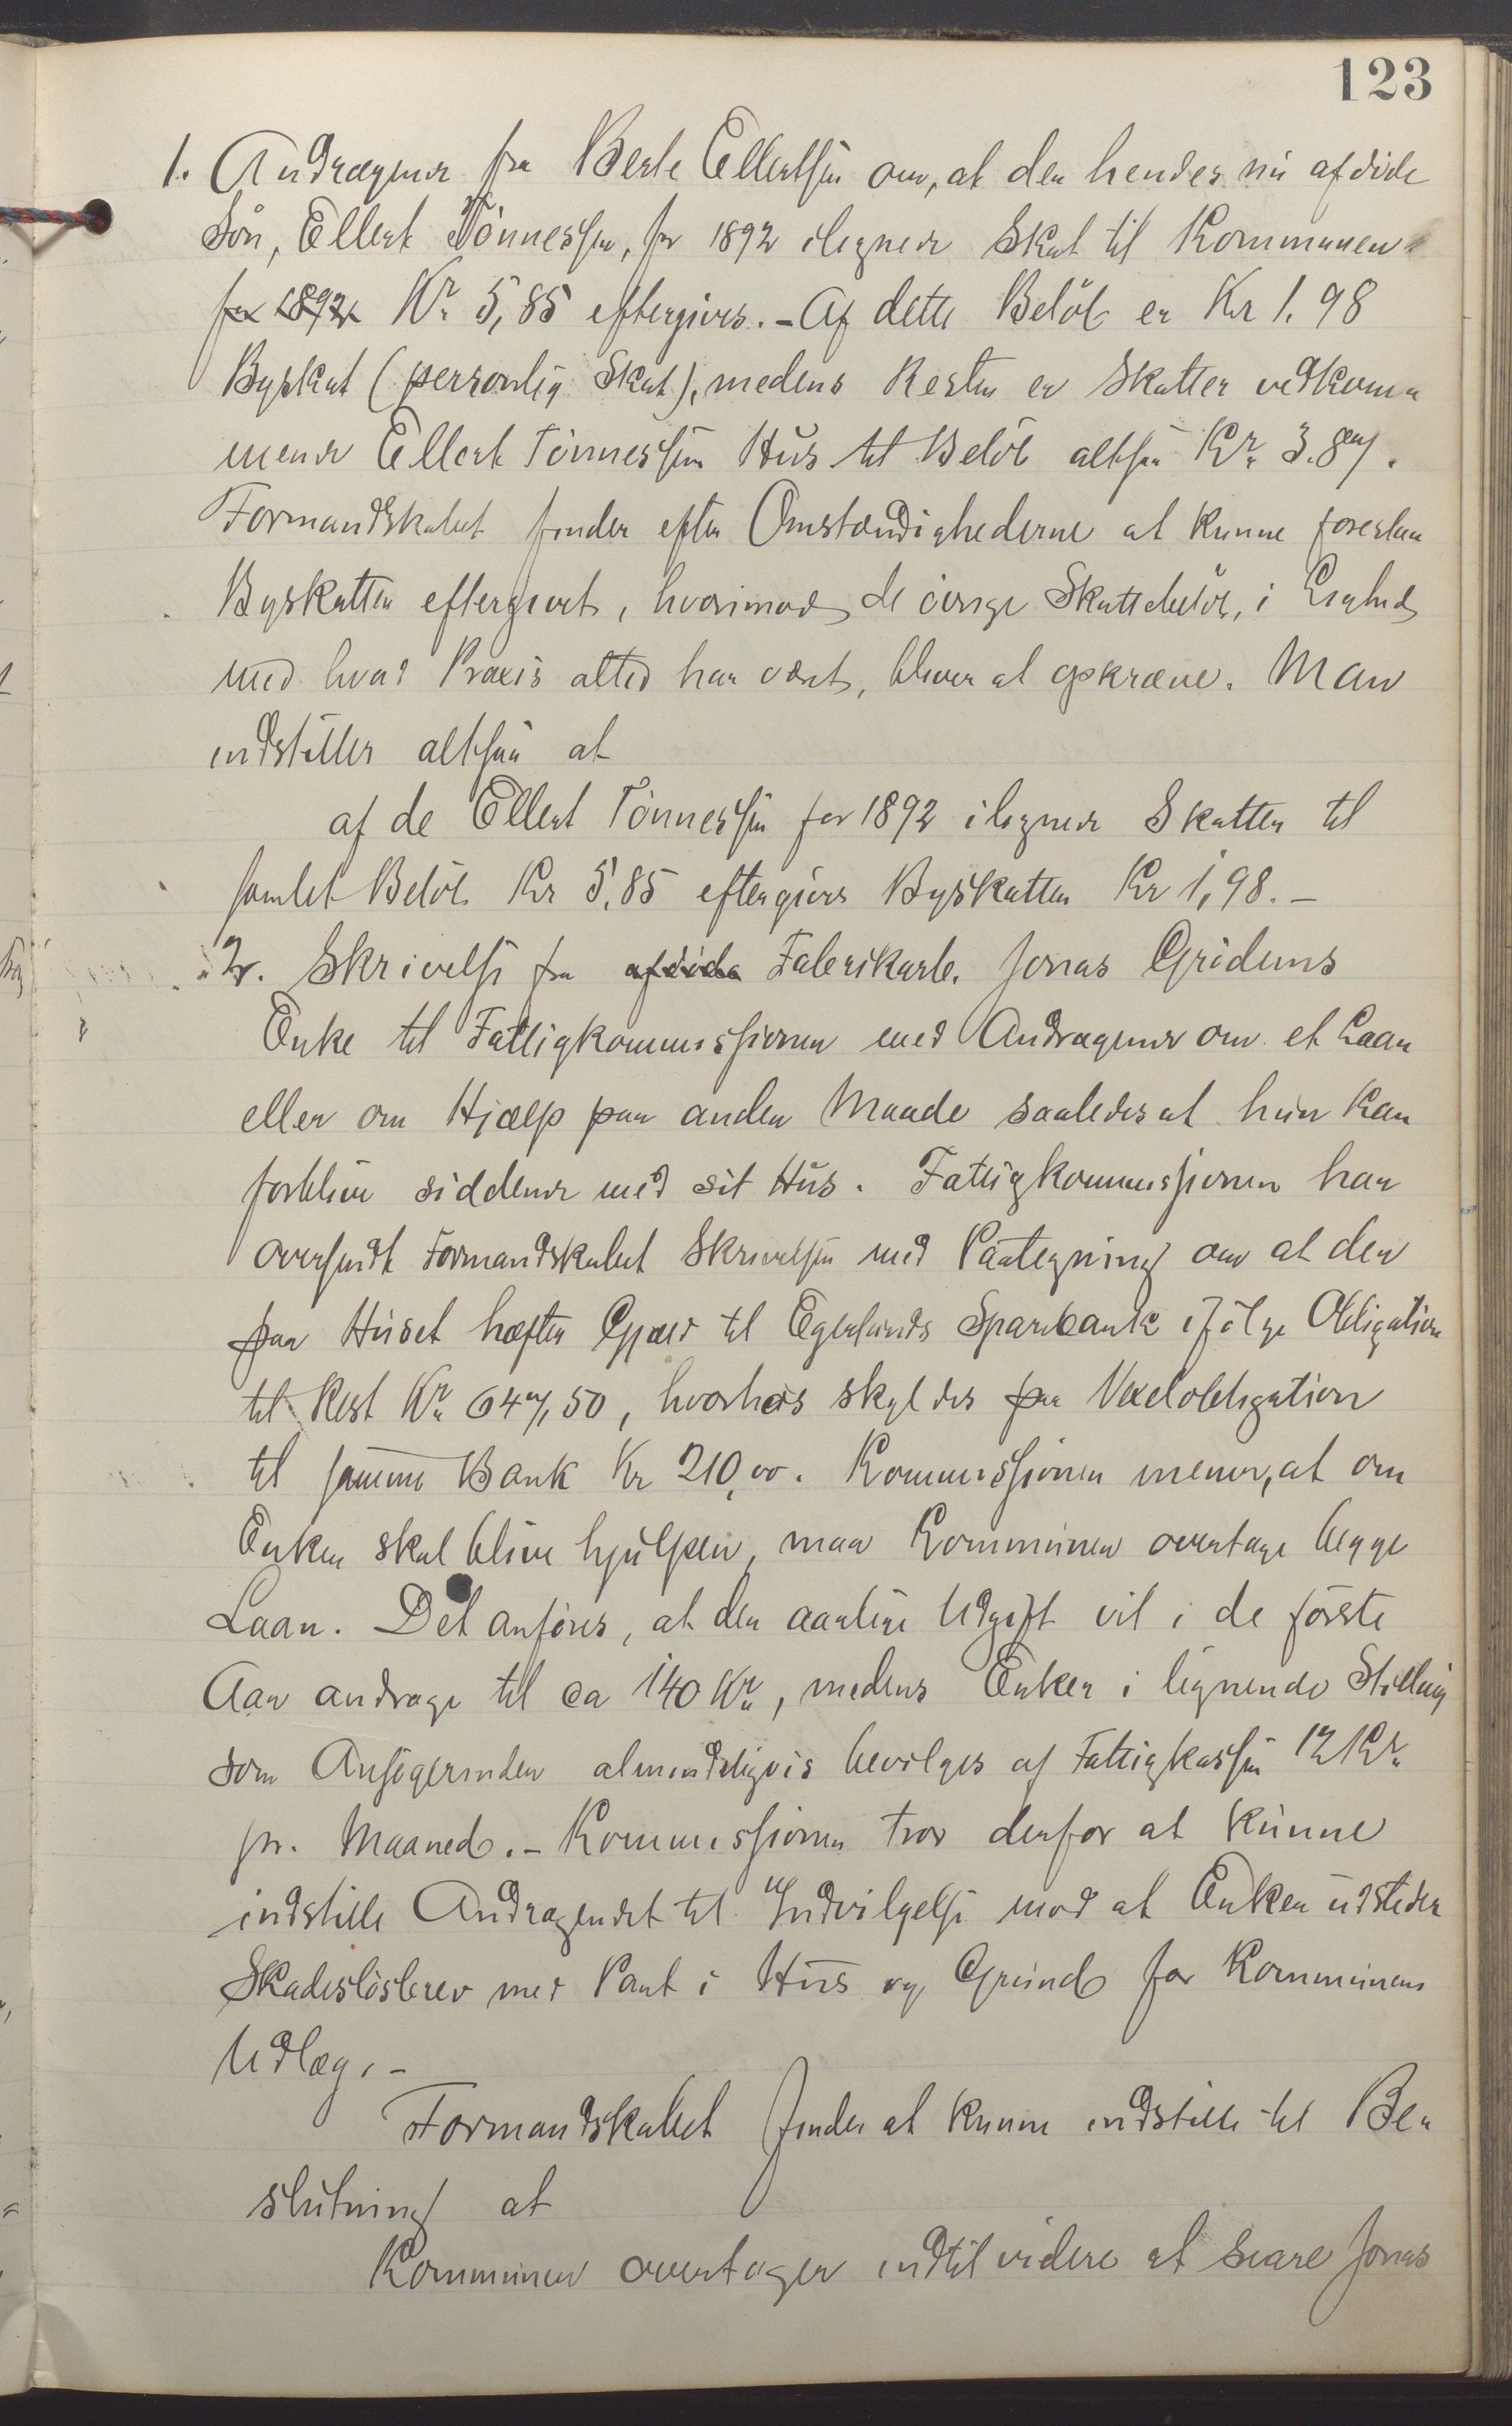 123
1. Andragende fra Berte Ellertsen om, at den hendes nu afdöde
Sön, Ellert Tönnessen, for 1892 ilignede Skat til Kommunen
for 1892 Kr. 5,85 eftergives. - Af dette Belöb er Kr 1.98
Byskat (personlig Skat), medens Resten er Skatter vedkom-
mende Ellert Tönnessens Hus til Belöb altsaa Kr. 3.87.
Formandskabet finder efter Omstændighederne at kunne foreslaa
Byskatten eftergivet, hvorimod de övrige Skattebelöb, i Lighed
med hvad Praxis altid har været, bliver at opkræve. Man
indstiller altsaa at
af de Ellert Tönnessen for 1892 ilignede Skatter til
samlet Belöb Kr 5,85 eftergives Byskatten Kr 1,98. -
2. Skrivelse fra afdöde Fabrikarb. Jonas Grödems
Enke til Fattigkommissionen med Andragende om et Laan
eller om Hjælp paa anden Maade saaledes at hun kan
forblive siddende med sit Hus. Fattigkommissionen har
oversendt Formandskabet Skrivelsen med Paategning om at der
paa Huset hæfter Gjæld til Egersunds Sparebank ifölge Obligation
til Rest Kr. 647,50, hvorhos skyldes paa Vexelobligation
til samme Bank Kr 210,00. Kommissionen mener, at om
Enken skal blive hjulpen, maa Kommunen overtage begge
Laan. Det anföres, at den aarlige Udgift vil i de förste
Aar andrage til ca 140 Kr., medens Enker i lignende Stilling
som Ansögerinden almindeligvis bevilges af Fattigkassen 12 Kr.
pr. Maaned. - Kommissionen tror derfor at kunne
indstille Andragendet til Indvilgelse mod at Enken udsteder
Skadeslösbrev med Pant i Hus og Grund for Kommunens
Udlæg. -
Formandskabet finder at kunne indstille til Be-
slutning at
Kommunen overtager indtil videre at svare Jonas